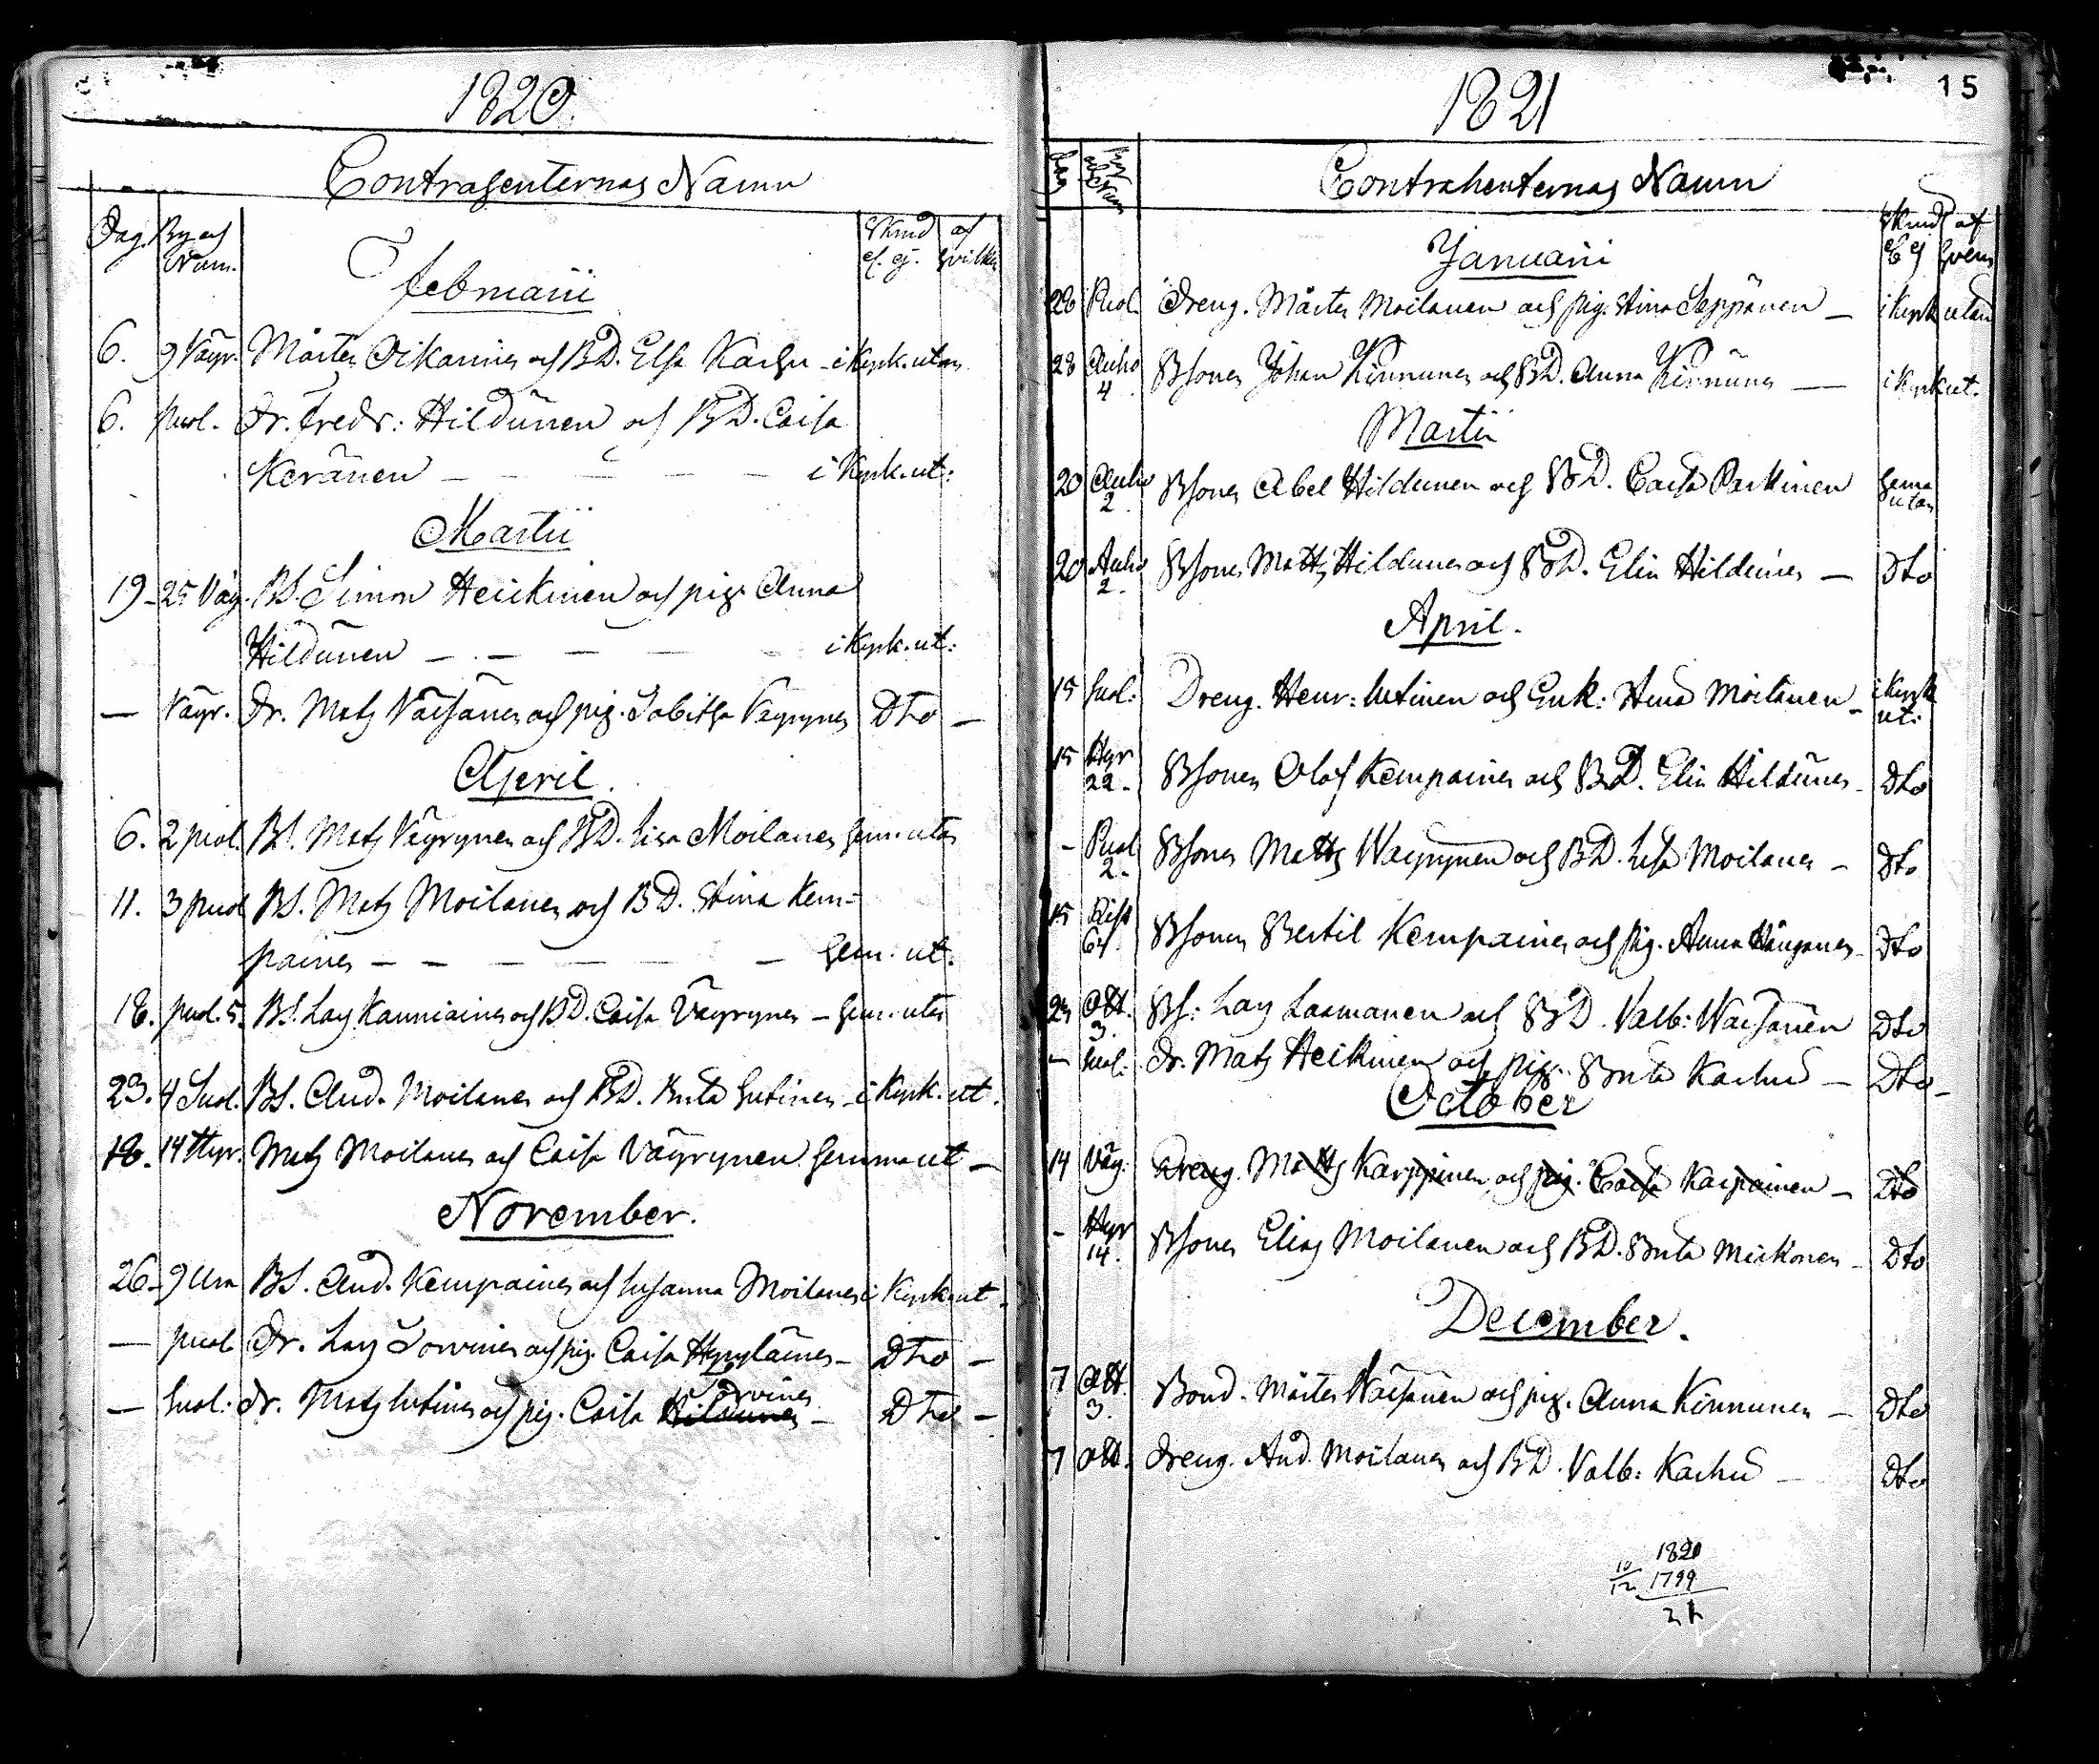 1820.
Contrahenternas Namn
Dag. By och Skrud af
Num. el. ej. hvilka
Februarii
6. 9 Väyr. Mårten Oikarinen och BD. Elsa Karhu - i Kyrk. utan
6. Puol. Dr. Fredr: Hildunen och BD. Caisa
Keränen - - - - - i Kyrk. ut:
Martii
19 - 25 Väy. BS. Simon Heickinen och pig. Anna
Hildunen - - - - - i Kyrk. ut:
- Väyr. Dr. Mats Väisänen och pig. Sabitha Väyrynen Dto -
April.
6. 2 puol. BS. Mats Väyrynen och BD. Lisa Moilanen hem. utan
11. 3 puol BS. Mats Moilanen och BD. Stina Kem=
painen - - - - - - hem. ut.
18. puol. 5. BS. Lars Kanniainen och BD. Caisa Väyrynen - hem. utan
23. 4 Suol. BS. And. Moilanen och BD. Brita Hutinen - i Kyrk. ut.
18. 14 Hyr. Mats Moilanen och Caisa Väyrynen hemma ut -
November.
26 - 9 BS. And. Kempainen och Susanna Moilanen i Kyrk ut -
- puol Dr. Lars Torvinen och pig. Caisa Hyryläinen - Dto -
Torvinen
- Suol. Dr. Mats Lutinen och pig. Caisa Hildunen - Dto -
15
1821
Dag By och Num
Contrahenternas Namn
Skrud af
el ej hvem
Januarii
28 Puol. Dreng. Mårten Moilanen och pig. Stina Seppänen - i Kyrk utan
28 Auho Bsonen Johan Kinnunen och BD. Anna Kinnunen - i Kyrk ut.
4
Martii
20 Auho Bsonen Abel Hildunen och BD. Caisa Parkinen hema
2. utan
20 Auho Bsonen Matts Hildunen och BD. Elin Hildunen - Dto
2.
April.
15 Suol: Dreng. Henr: Lutinen och Enk: Stina Moilanen - i Kyrk
ut.
15 Hyr Bsonen Olof Kempainen och BD. Elin Hildunen - Dto
22.
- Puol Bsonen Matts Wäyrynen och BD. Lisa Moilanen - Dto
2.
15 Rist Bsonen Bertil Kempainen och pig. Anna - Dto
64.
Ott. Bs: Lars Laamanen och BD. Valb: Waisänen Dto
3.
- Suol. Dr. Mats Heikinen och pig. Brita Karhu - Dto -
October
14 Väy. Dreng. Matts Karppinen och pig. Caisa Karpainen - Dto
- Hyr Bsonen Elias Moilanen och BD. Brita Mickonen - Dto
14.
December.
7 Ott. Bond. Mårten Waisänen och pig. Anna Kinnunen - Dto
3.
7 Ott. Dreng. And. Moilanen och BD. Valb: Karhu - Dto
1820
10/12 1799
21